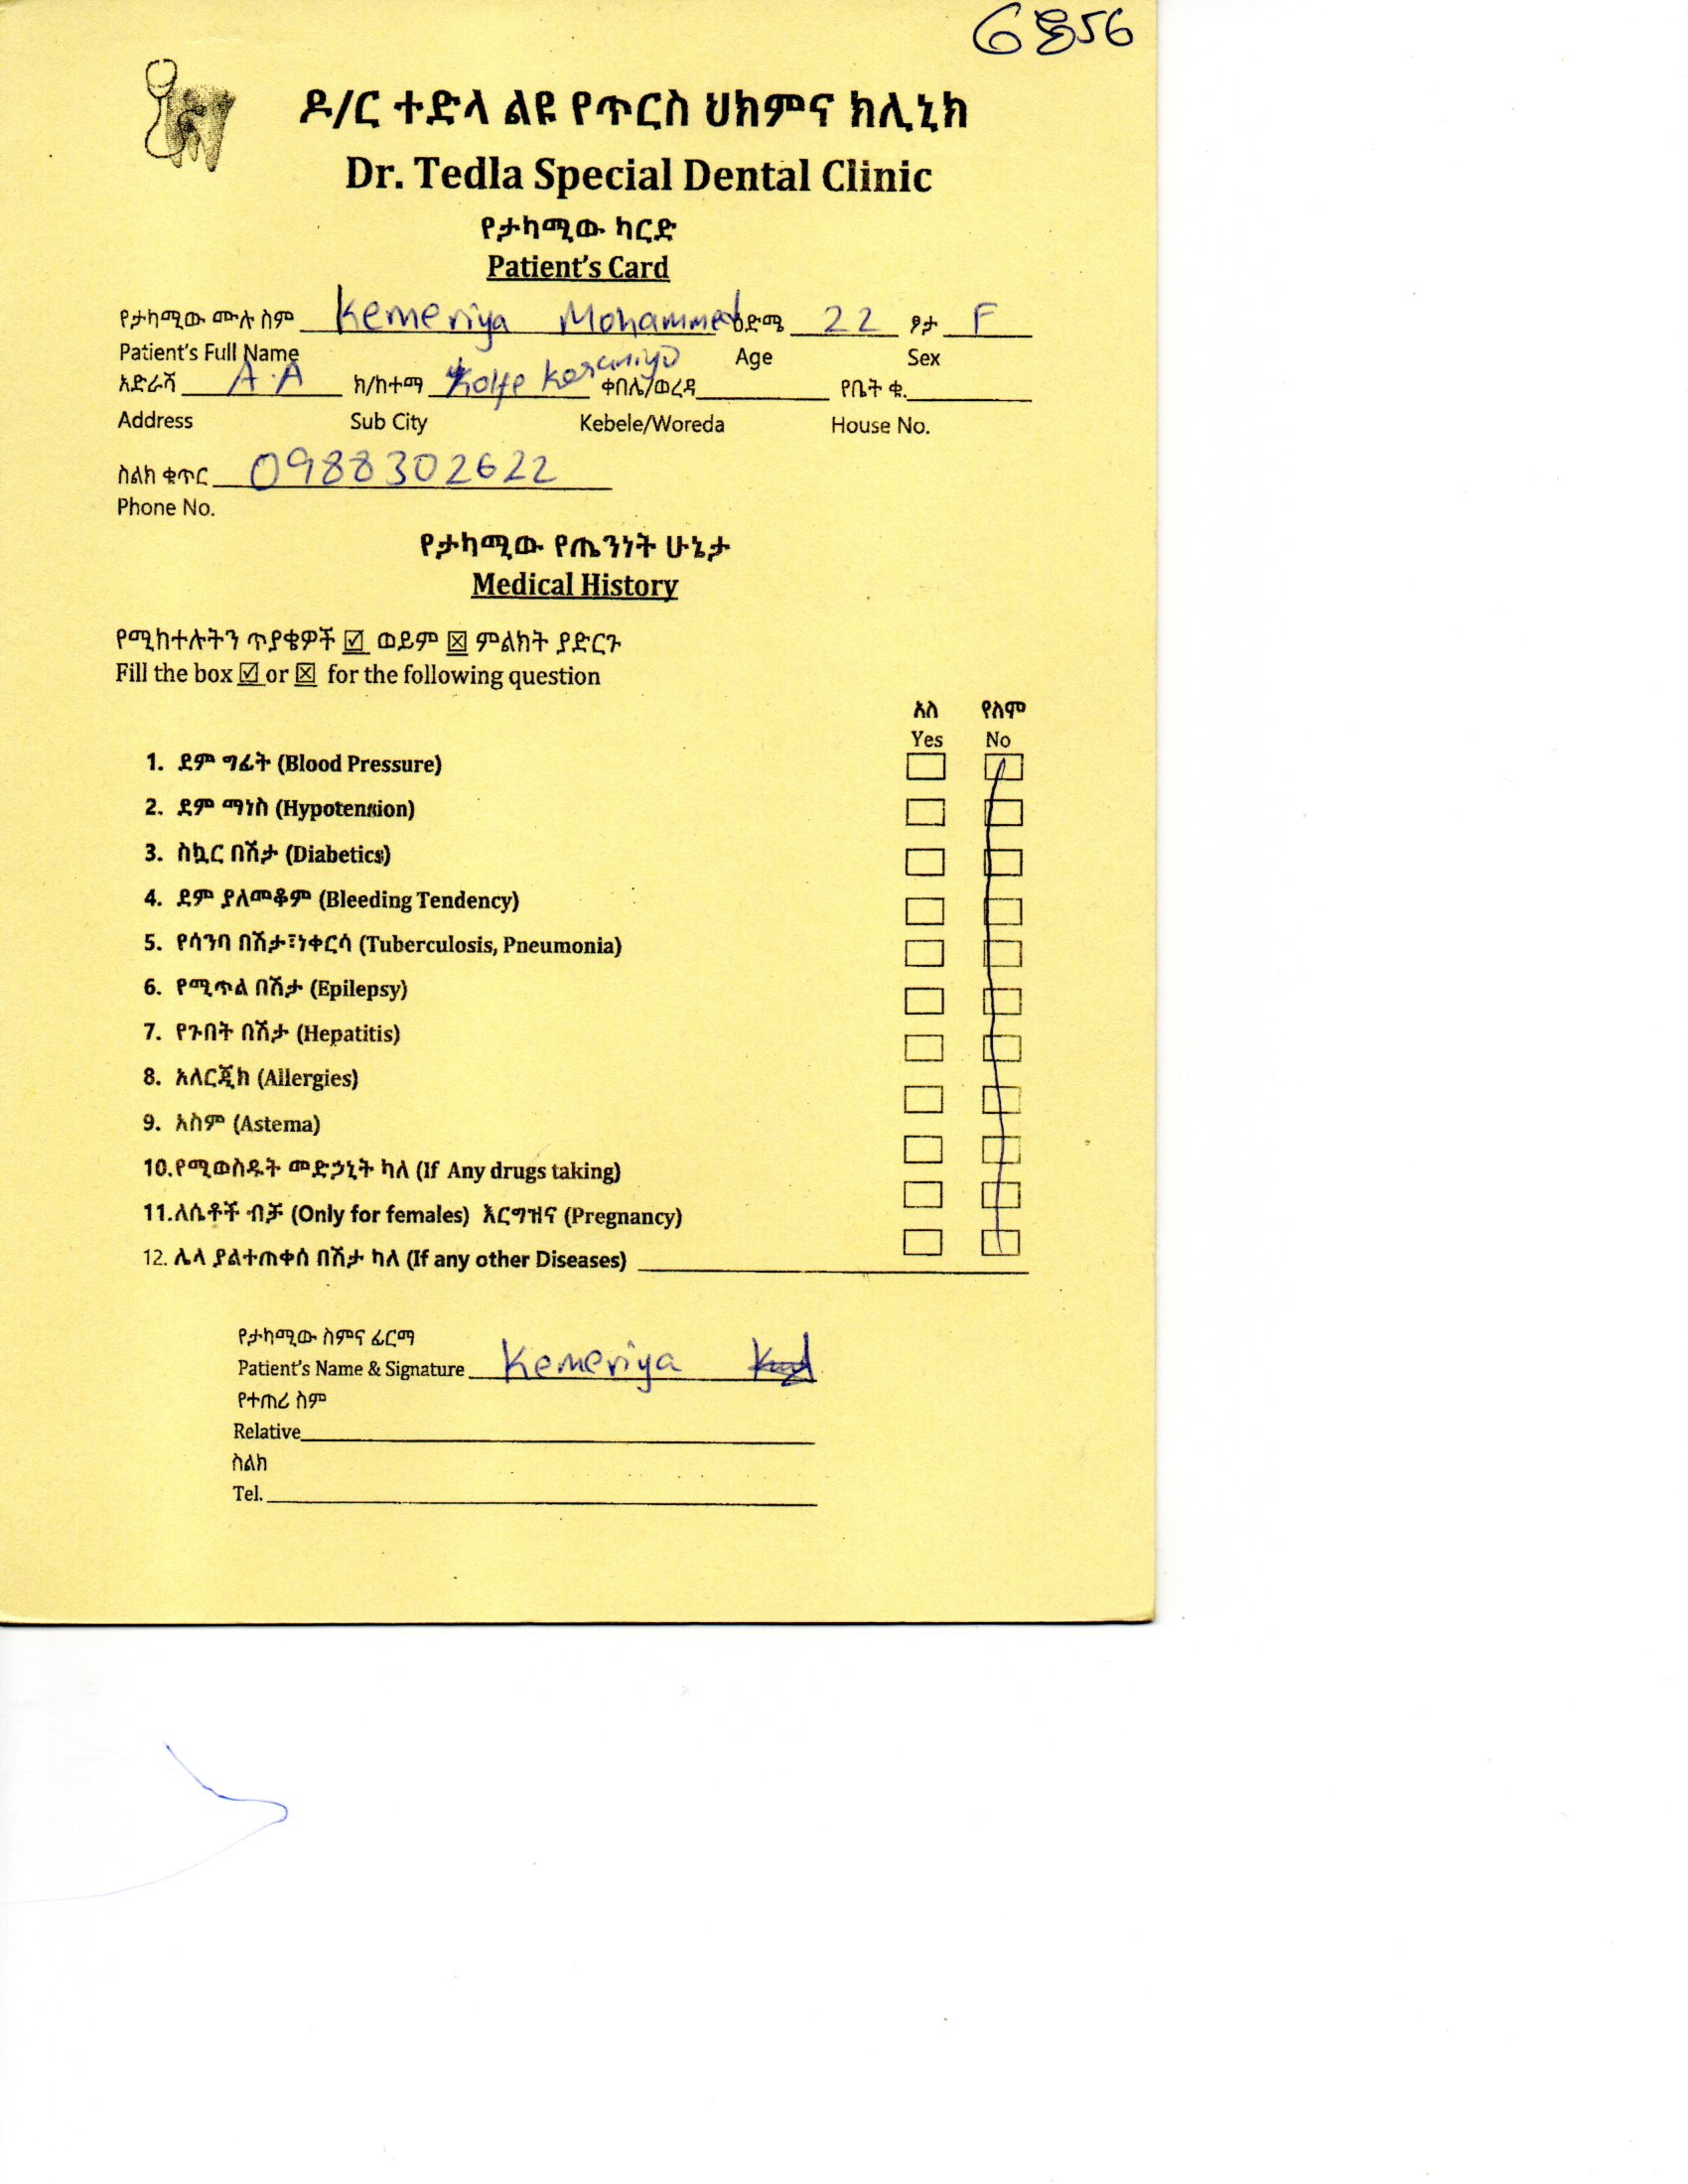 ዶ/ር ተድላ ልዩ የጥርስ ህክምና ክሊኒክ
Dr. Tedla Special Dental Clinic
የታካሚው ካርድ
Patient's Card
የታካሚው ሙሉ ስም Kemeriya Mohammed ዕድሜ 22 ፆታ F
Patient's Full Name Age Sex
አድራሻ A.A ክ/ከተማ Kolfe Keraniyo ቀበሌ/ወረዳ የቤት ቁ.
Address Sub City Kebele/Woreda House No.
ስልክ ቁጥር 0988302622
Phone No.
የታካሚው የጤንነት ሁኔታ
Medical History
የሚከተሉትን ጥያቄዎች ☑ ወይም ☒ ምልክት ያድርጉ
Fill the box ☑ or ☒ for the following question
አለ የለም
Yes No
1. ደም ግፊት (Blood Pressure)
2. ደም ማነስ (Hypotension)
3. ስኳር በሽታ (Diabetics)
4. ደም ያለመቆም (Bleeding Tendency)
5. የሳንባ በሽታ፣ነቀርሳ (Tuberculosis, Pneumonia)
6. የሚጥል በሽታ (Epilepsy)
7. የጉበት በሽታ (Hepatitis)
8. አለርጂክ (Allergies)
9. አስም (Astema)
10.የሚወስዱት መድኃኒት ካለ (If Any drugs taking)
11.ለሴቶች ብቻ (Only for females) እርግዝና (Pregnancy)
12. ሌላ ያልተጠቀሰ በሽታ ካለ (If any other Diseases)
የታካሚው ስምና ፊርማ
Patient's Name & Signature Kemeriya
የተጠሪ ስም
Relative
ስልክ
Tel.